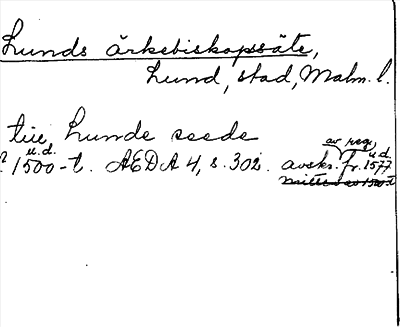 Lunds ärkebiskopssäte,
Lund, stad, Malm. l.
tiie Lunde seede
u.d. av reg. u.d.
? 1500-t. AEDA 4, s. 302. avskr. fr. 1577